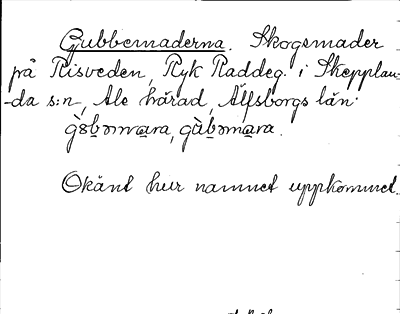 Gubbemaderna. Skogsmader
på Risveden, Ryk Raddeg. i Skepplan-
-da s:n, Ale härad, Älfsborgs län.

Okänt hur namnet uppkommit.